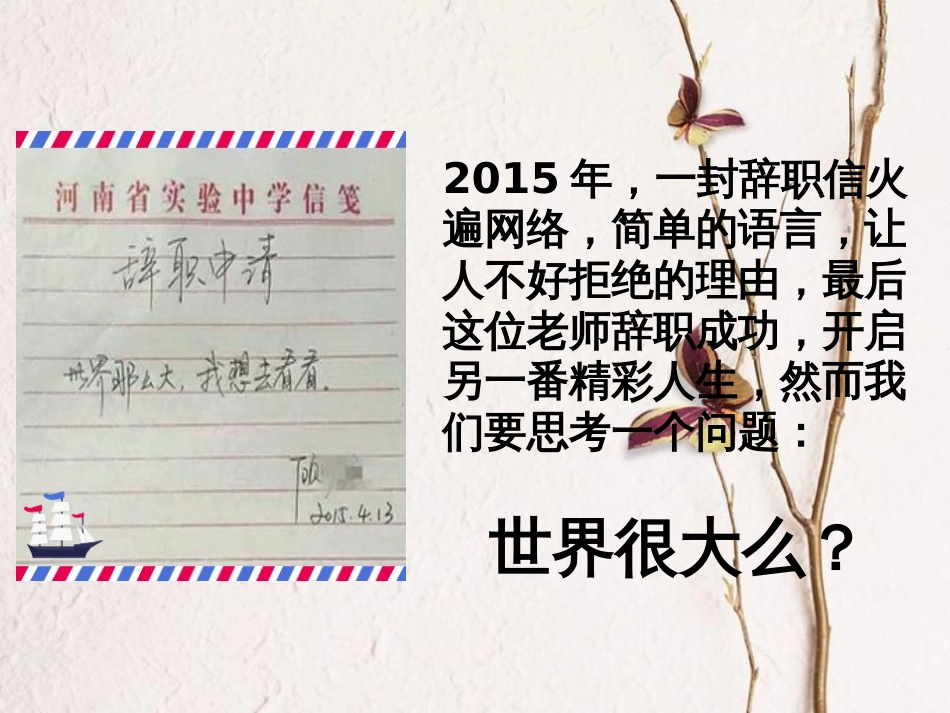 河南省实验中学信笺
辞职申请
世界那么大，我想去看看。
顾
2015.4.13
2015 年，一封辞职信火
遍网络，简单的语言，让
人不好拒绝的理由，最后
这位老师辞职成功，开启
另一番精彩人生，然而我
们要思考一个问题：
世界很大么？